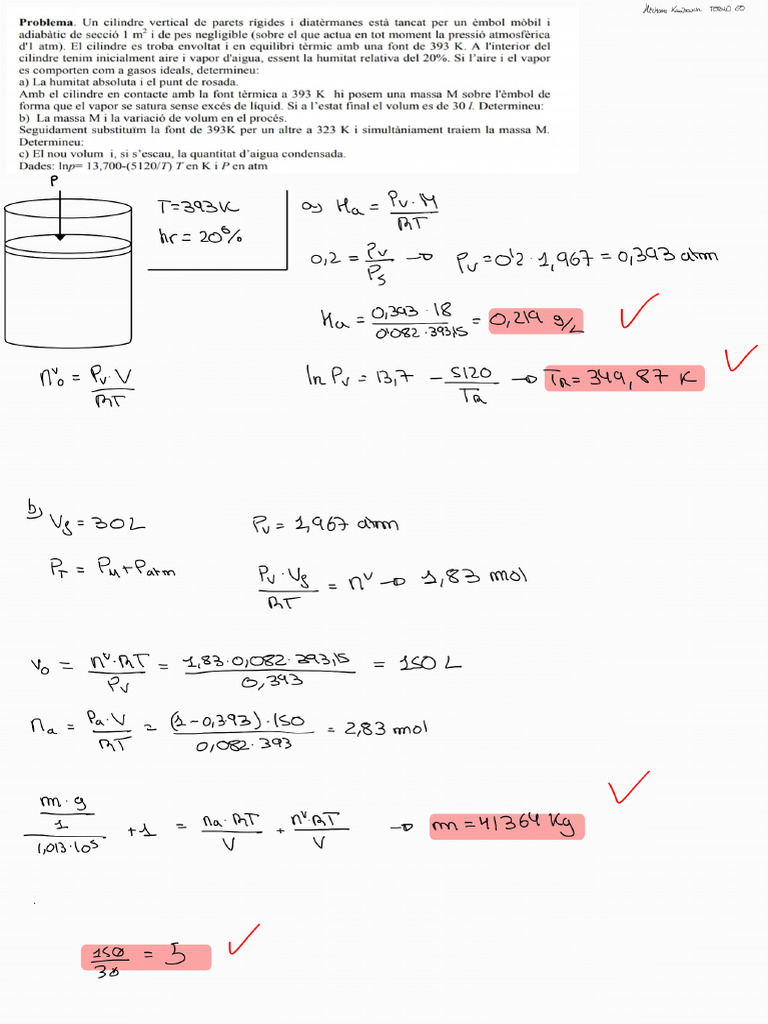 Problema. Un cilindre vertical de parets rígides i diatèrmanes està tancat per un èmbol mòbil i
adiabàtic de secció 1 m² i de pes negligible (sobre el que actua en tot moment la pressió atmosfèrica
d'1 atm). El cilindre es troba envoltat i en equilibri tèrmic amb una font de 393 K. A l'interior del
cilindre tenim inicialment aire i vapor d'aigua, essent la humitat relativa del 20%. Si l'aire i el vapor
es comporten com a gasos ideals, determineu:
a) La humitat absoluta i el punt de rosada.
Amb el cilindre en contacte amb la font tèrmica a 393 K hi posem una massa M sobre l'èmbol de
forma que el vapor se satura sense excés de líquid. Si a l'estat final el volum es de 30 l. Determineu:
b) La massa M i la variació de volum en el procés.
Seguidament substituïm la font de 393K per un altre a 323 K i simultàniament traiem la massa M.
Determineu:
c) El nou volum i, si s'escau, la quantitat d'aigua condensada.
Dades: lnp= 13,700-(5120/T) T en K i P en atm
P
T=393K
hr = 20%
a) Ha = Pv·M / RT
0,2 = Pv / Ps → Pv = 0'2 · 1,967 = 0,393 atm
Ha = 0,393 · 18 / 0'082 · 393,15 = 0,219 g/L
nᵛ₀ = Pv·V / RT
ln Pv = 13,7 - 5120 / TR → TR = 349,87 K
b) Vf = 30 L
Pv = 1,967 atm
PT = PM + Patm
Pv · Vf / RT = nᵛ → 1,83 mol
V₀ = nᵛ·RT / Pv = 1,83·0,082·393,15 / 0,393 = 150 L
na = Pa·V / RT = (1-0,393)·150 / 0,082·393 = 2,83 mol
m·g / 1 / 1,013·10⁵ + 1 = na·RT / V + nᵛ·RT / V → m = 41364 Kg
150 / 30 = 5